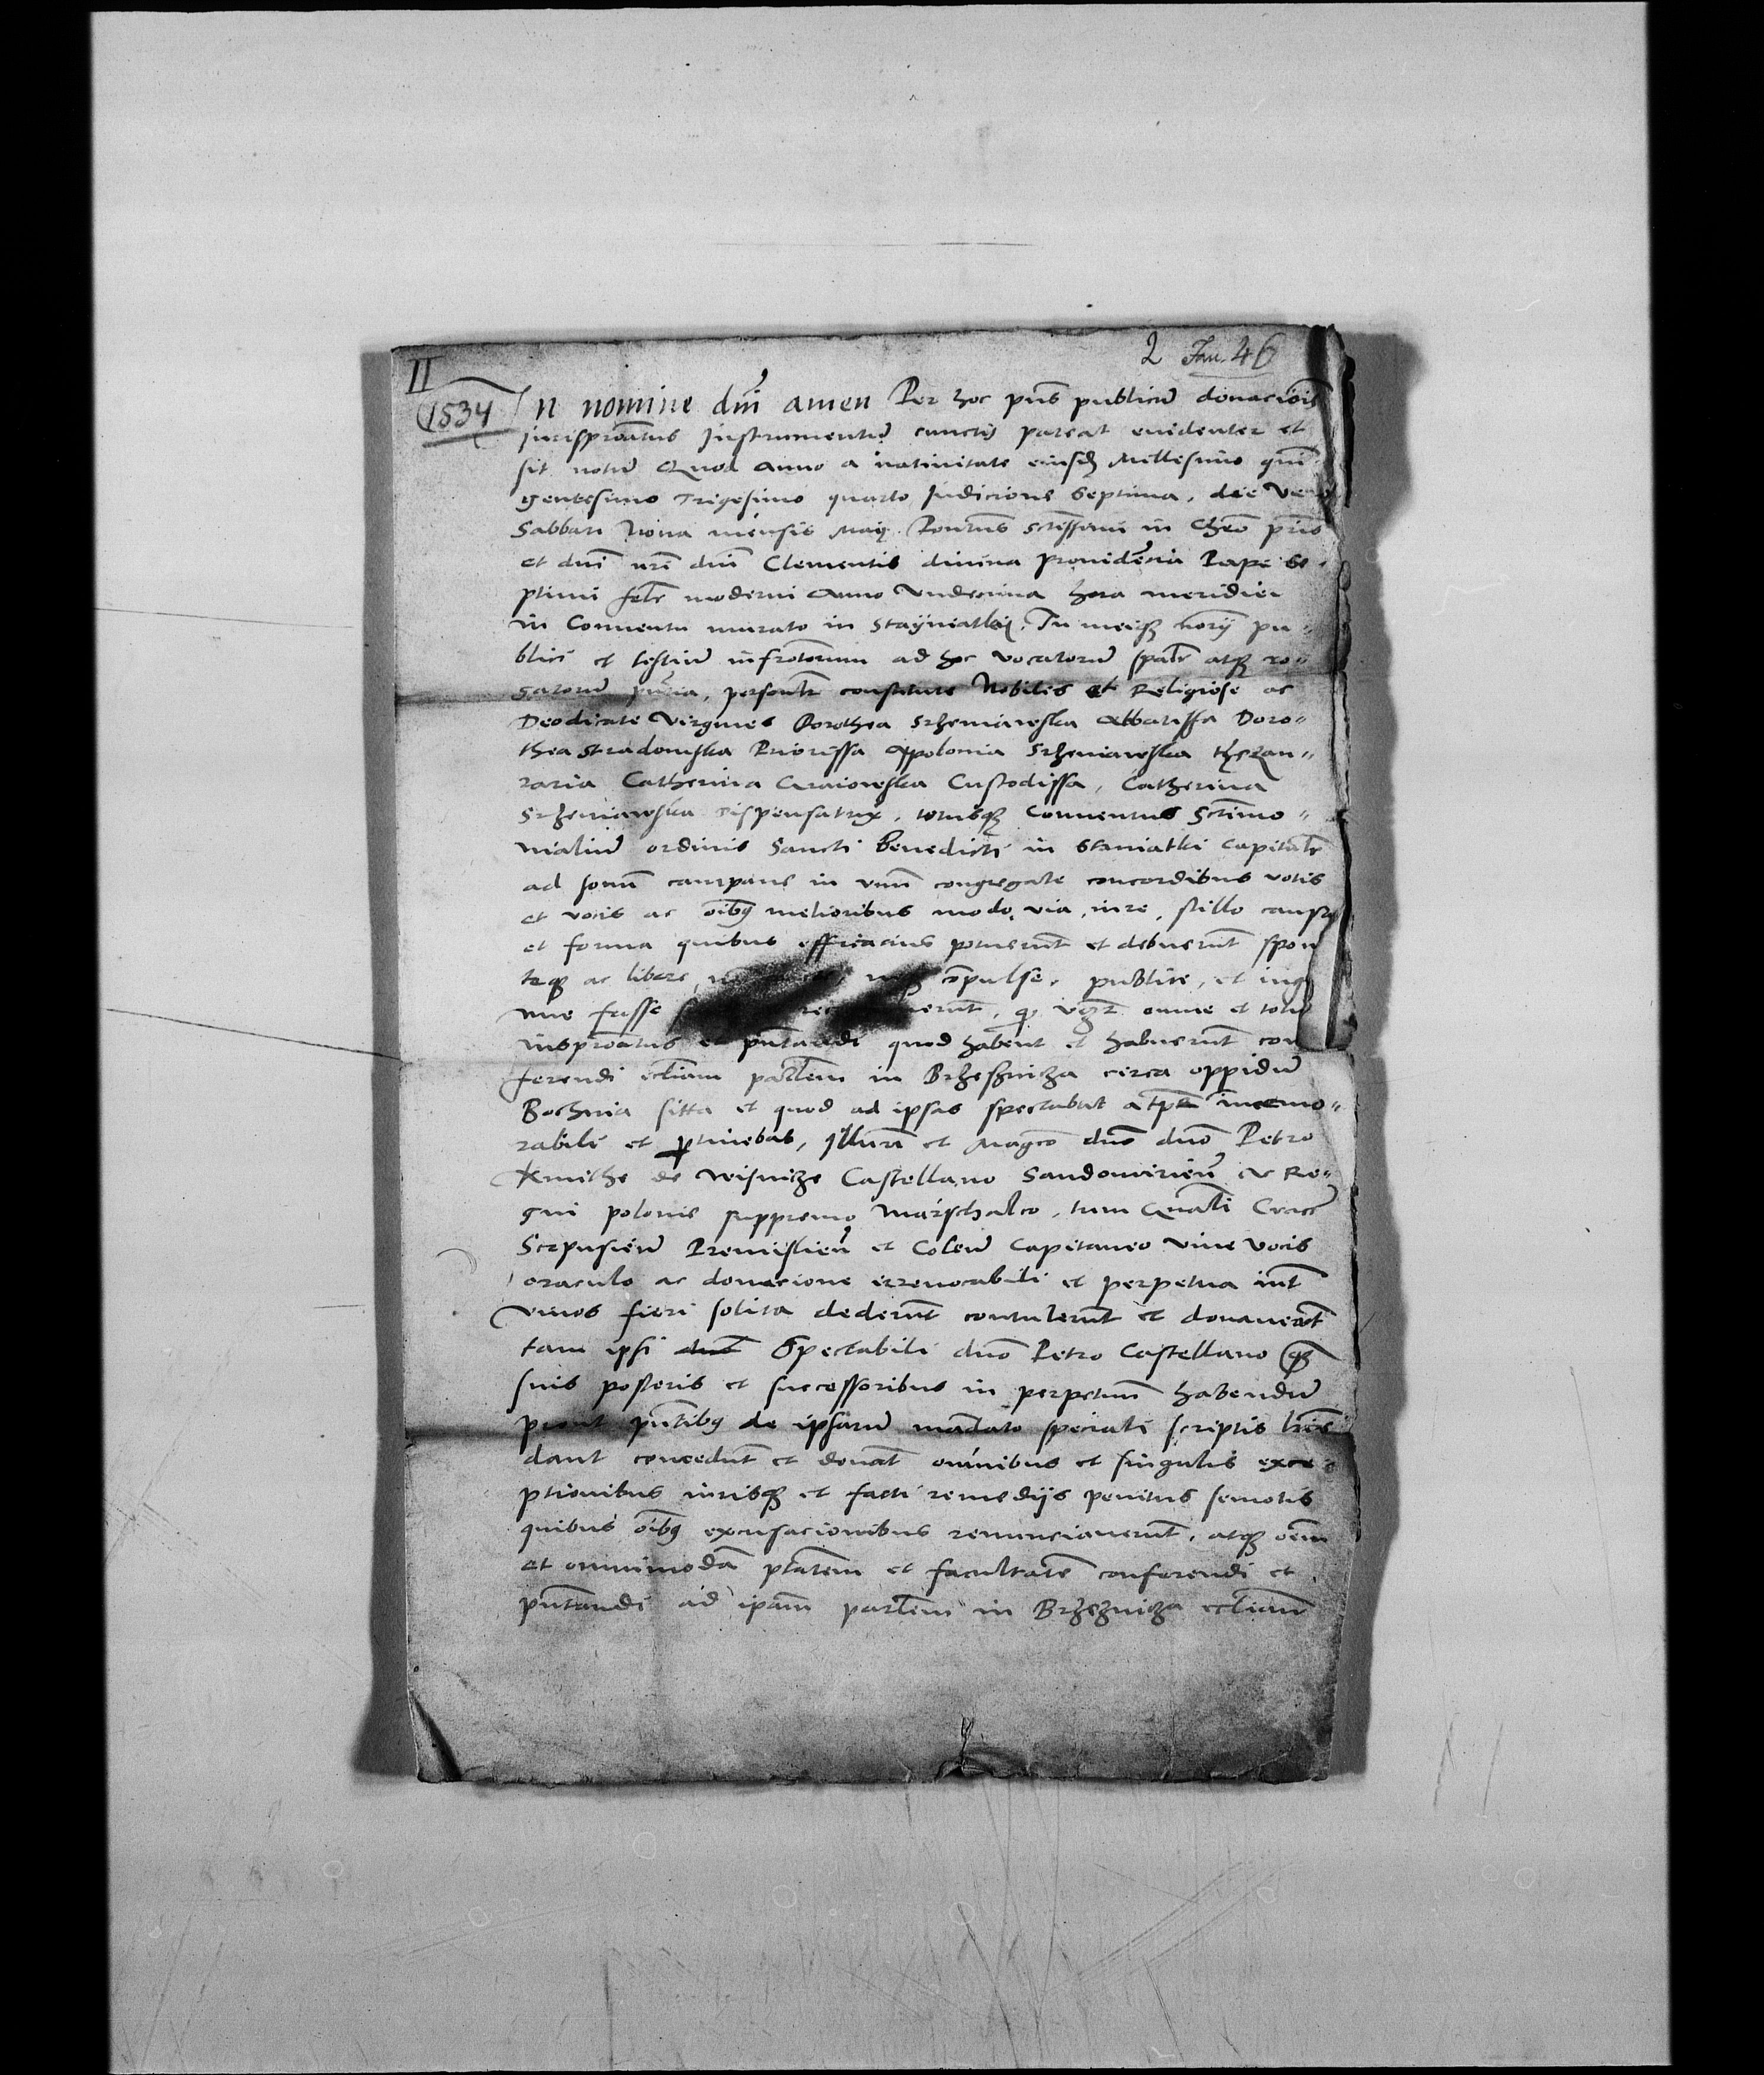 II
2 Jan. 46
1534
In nomine dni amen Per hoc pns publicu donacionis
Jurispronatus Instrumentu cunctis pateat euidenter et
sit notu Quod Anno a natiuitate eiusd Millesimo quin
gentesimo Trigesimo quarto Indicione Septima, die Vero
Sabbati Nona mensis Maij Pontus sctissimi in Cheo pris
et dni nri dni Clementis diuina prouidencia Pape Se-
ptimi moderni Anno Vndecima hora meridiei
in Conuentu murato in Stayniatki. In meiq noty pu-
blici et testiu infrotorum ad hoc vocatoru spalr atq ro-
gatoru pncia, personlr constitute Nobiles et Religiose ac
Deodicate Virgines Dorothea Srzeniawska Abbatissa Doro-
thea Stradomska Priorissa Appolonia Srzeniawska thezau-
raria Catherina Graiowska Custodissa, Catherina
Srzeniawska dispensatrix, totusq Conuentus Sctimo-
nialiu ordinis Sancti Benedicti in Staniatki Capitulr
ad sonu campane in vnu congregate concordibus votis
et vocis ac oibq melioribus modo, via, iure, stillo causa
et forma quibus efficacius potuerut et debuerut spon
teq ac libere, copulse, publice, et inge
nue fasse erut, q omne et totu
iuspronatus et pntandi quod habent et habuerut con
ferendi eccliam partlem in Brzesznicza circa oppidu
Bochnia sitta et quod ad ipsas spectabat a tpe inmemo-
rabili et ptinebat, Illustri et Magco dno dno Petro
Kmithe de Wisnicze Castellano Sandomirien ac Re-
gni polonie supremo Marschalco, tum Gnali Cracc
Scepusien Premislien et Colen Capitaneo viue vocis
oraculo ac donacione irreuocabili et perpetua int
viuos fieri solita dederut contulerut et donauerut
tam ipsi dno Spectabili dno Petro Castellano q
suis posteris et successoribus in perpetuu habendu
prout pntibq de ipsaru madato speciali scriptis lris
dant concedut et donat omnibus et singulis exce-
ptionibus iurisq et facti remedijs penitus semotis
quibus oibq excusacionibus renunciauerut, atq oem
et omnimoda ptatem et facultate conferendi et
pntandi ad ipam partlem in Brzesznicza eccliam